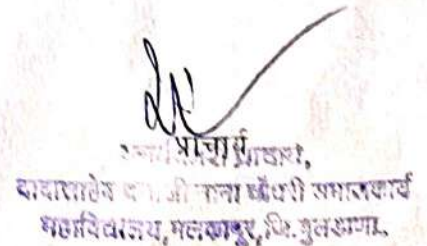 प्राचार्य
प्राचार्य,
दादासाहेब नाना चौधरी समाजकार्य
महाविद्यालय, मलकापूर, जि. बुलडाणा.